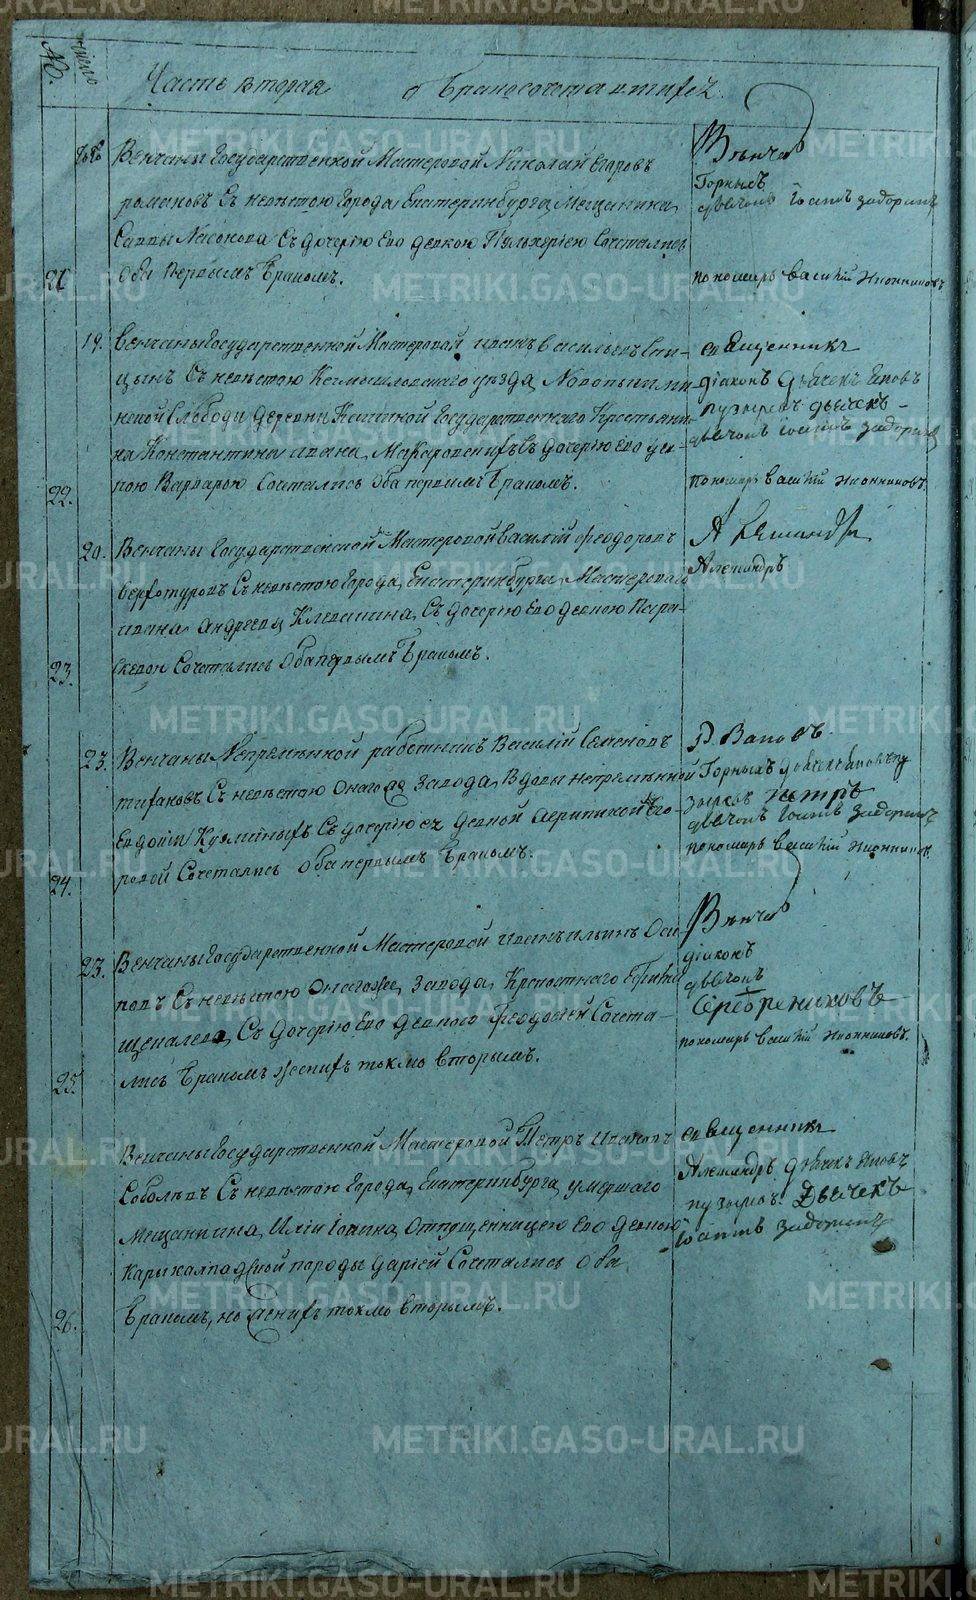 №. число
Часть вторая о Бракосочетавшихся
Венчаны Государственной Мастеровой Николай Егоровъ
романовъ Съ невѣстою Города Екатеринбурга Мещанина
Саввы Насонова Съ дочерію Его девкою Пулхеріею Сочетались
21 Оба Первымъ Бракомъ.
Горныхъ
дьячокъ Іоаннъ
пономарь Василій Иконниковъ
19. Венчаны Государственной Мастеровой иванъ васильевъ Спи-
цынъ Съ невѣстою Камышловскаго уѣзда, Новопышмин
ской Слободы деревни Государственнаго Крестьяни
на Константина ивана Макаровскихъ Съ дочерію Его дев-
22. кою Варварою Сочетались Оба первымъ Бракомъ.
священникъ
діаконъ дьячекъ Яковъ
пузыревъ дьячекъ
дьячокъ Іоаннъ
пономарь василій Иконниковъ.
20. Венчаны Государственной Мастеровой Василій Феодоровъ
верхотуровъ Съ невѣстою Города, Екатеринбурга Мастероваго
ивана Андреева Клевакина, Съ дочерію Его девкою Пара-
23. скевою Сочетались Оба первымъ Бракомъ.
Александръ
23. Венчаны Непремѣнной работникъ Василій Семеновъ
Съ невѣстою Онаго же Завода, Вдовы непремѣнной
Евдокіи Кузминыхъ Съ дочерію ея девкой Агрипиной Его-
24. ровой Сочетались Оба первымъ Бракомъ.
Горныхъ дьячекъ Яковъ пу
зыревъ Петръ
дьячокъ Іоаннъ
пономарь василій Иконниковъ.
23. Венчаны Государственной Мастеровой иванъ ильинъ Оси
повъ Съ невѣстою Онагоже, Завода, Крепостнаго
Съ дочерію Его девкою Феодосіей Сочета-
25. лись Бракомъ женихъ токмо вторымъ.
діаконъ
дьячокъ
Серебрениковъ
пономарь василій Иконниковъ.
Венчаны Государственной Мастеровой Петръ ивановъ
Соболевъ Съ невѣстою Города, Екатеринбурга, умершаго
Мещанина, Иліи отпущенницею Его девкою
Каракалпацкой породы Даріей Сочетались Оба
26. Бракомъ, но женихъ токмо вторымъ.
священникъ
Александръ дьячекъ Яковъ
пузыревъ. Дьячекъ
Іоаннъ
METRIKI.GASO-URAL.RU